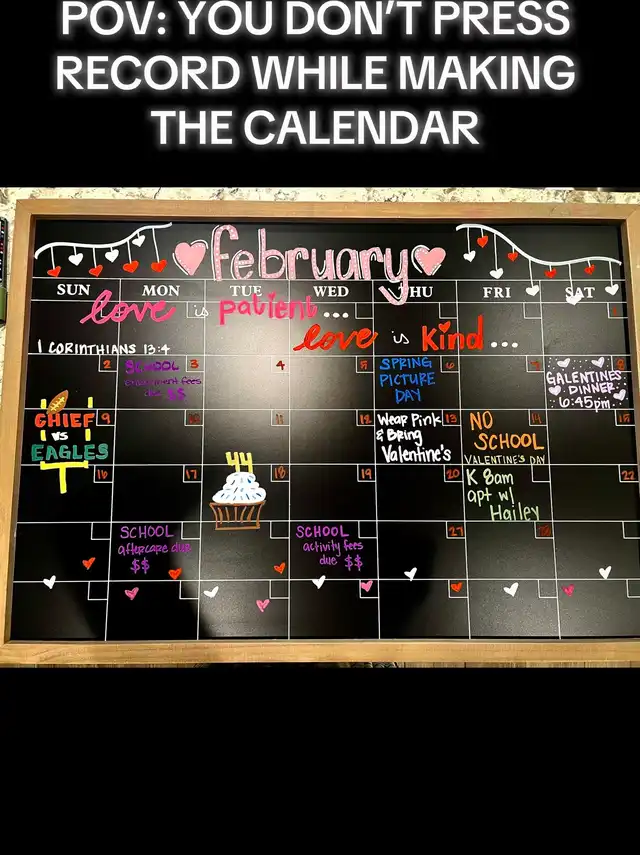 POV: YOU DON'T PRESS
RECORD WHILE MAKING
THE CALENDAR
february
SUN MON TUE WED THU FRI SAT
love is patient...
love is kind...
1 CORINTHIANS 13:4
2
SCHOOL 3
enrichment fees
due $$
4
5
SPRING 6
PICTURE
DAY
7
8
GALENTINES
DINNER
6:45pm
CHIEF 9
vs
EAGLES
10
11
12
Wear Pink 13
& Bring
Valentine's
NO 14
SCHOOL
VALENTINE'S DAY
15
16
17
44
18
19
20
K 8am
apt w/
Hailey
22
SCHOOL
aftercare due
$$
SCHOOL
activity fees
due $$
27
28